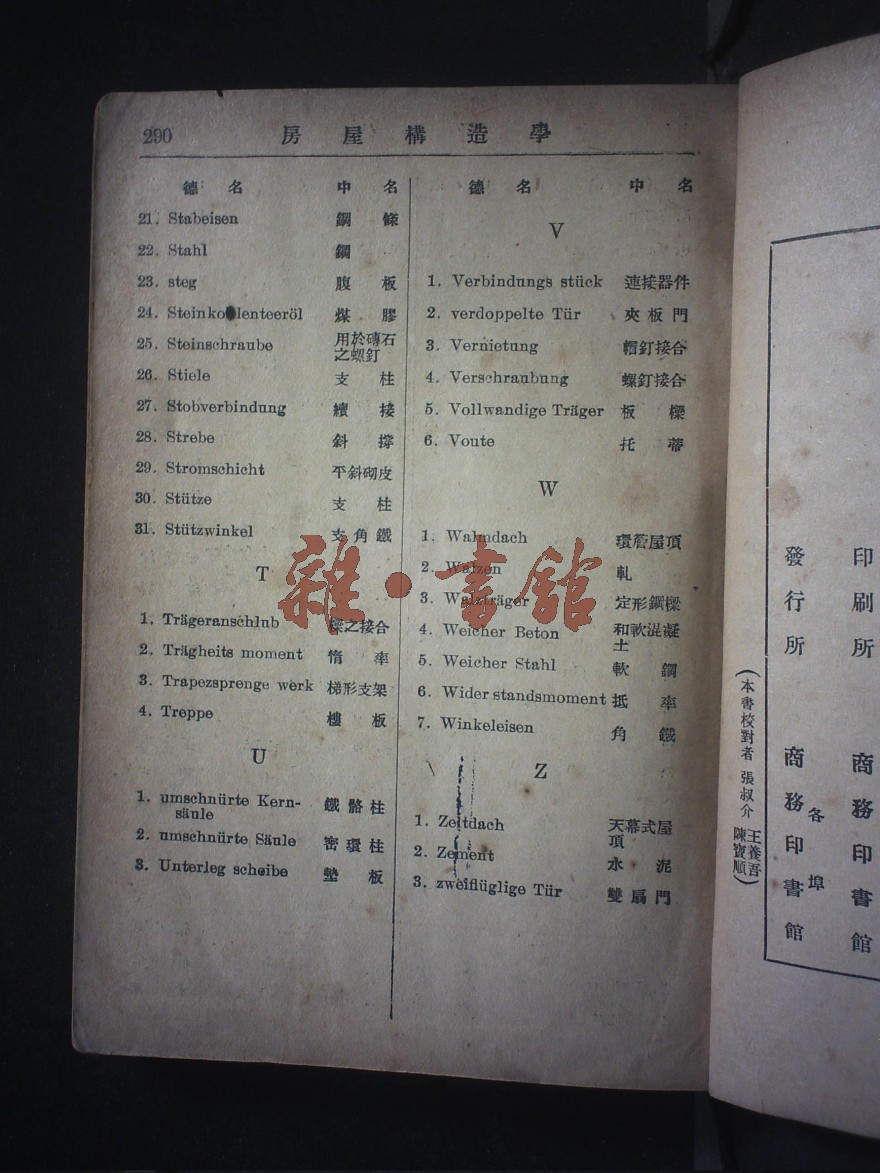 290 房屋構造學
德名 中名
21. Stabeisen 鋼條
22. Stahl 鋼
23. steg 腹板
24. Steinkolenteeröl 煤膠
25. Steinschraube 用於磚石
之螺釘
26. Stiele 支柱
27. Stobverbindung 續接
28. Strebe 斜撐
29. Stromschicht 平斜砌皮
30. Stütze 支柱
31. Stützwinkel 支角鐵
T
1. Trägeranschlub 樑之接合
2. Trägheits moment 惰率
3. Trapezsprenge werk 梯形支架
4. Treppe 樓板
U
1. umschnürte Kern-
säule 鐵骼柱
2. umschnürte Säule 密環柱
3. Unterleg scheibe 墊板
德名 中名
V
1. Verbindungs stück 連接器件
2. verdoppelte Tür 夾板門
3. Vernietung 帽釘接合
4. Verschraubung 螺釘接合
5. Vollwandige Träger 板樑
6. Voute 托蒂
W
1. Walmdach 環簷屋頂
2. Walzen 軋
3. Walzträger 定形鋼樑
4. Weicher Beton 和軟混凝
土
5. Weicher Stahl 軟鋼
6. Wider standsmoment 抵率
7. Winkeleisen 角鐵
Z
1. Zeltdach 天幕式屋
頂
2. Zement 水泥
3. zweiflüglige Tür 雙扇門
雜·書館
印刷所 商務印書館
發行所 商務印書館
各埠
(本書校對者 張叔介
王養吾
陳寶順)